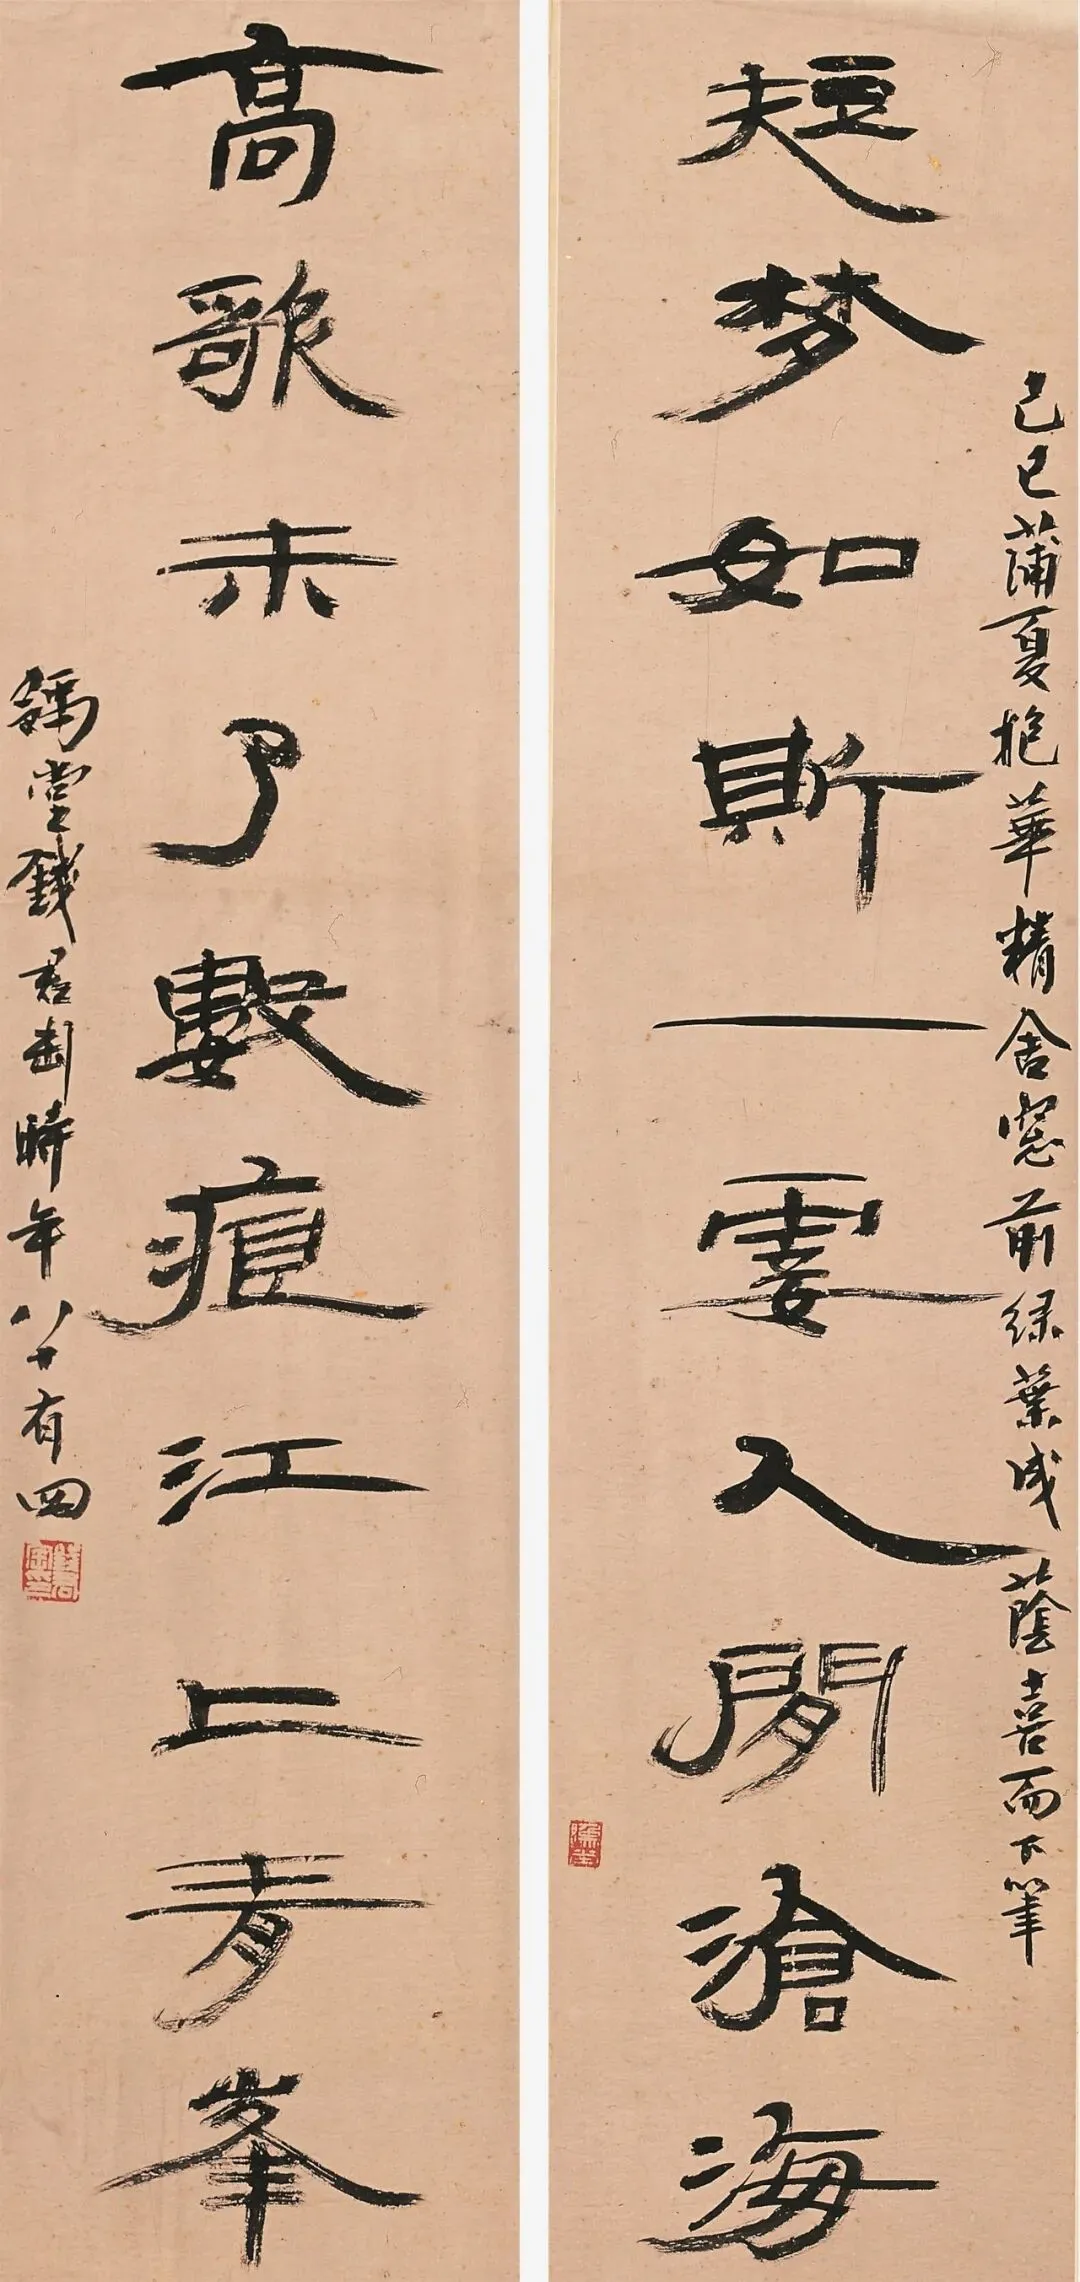 短梦如斯一霎人間滄海
己巳蒲夏抱華精舍窓前緑葉成蔭喜而下筆
高歌未了數痕江上青峯
豫堂錢君匋時年八十有四